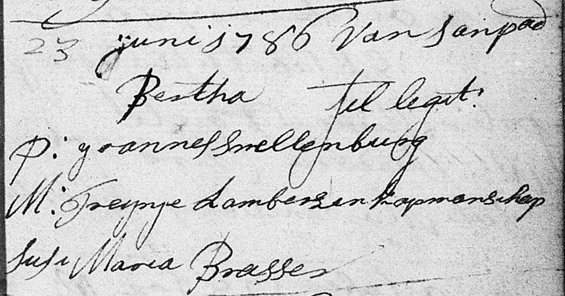 23 juni 1786 Van Sanpad
Bertha fil legit:
P: yoannes Snellenburg
M: Treyntje Lambersen kapmanschap
Susi Maria Brasser